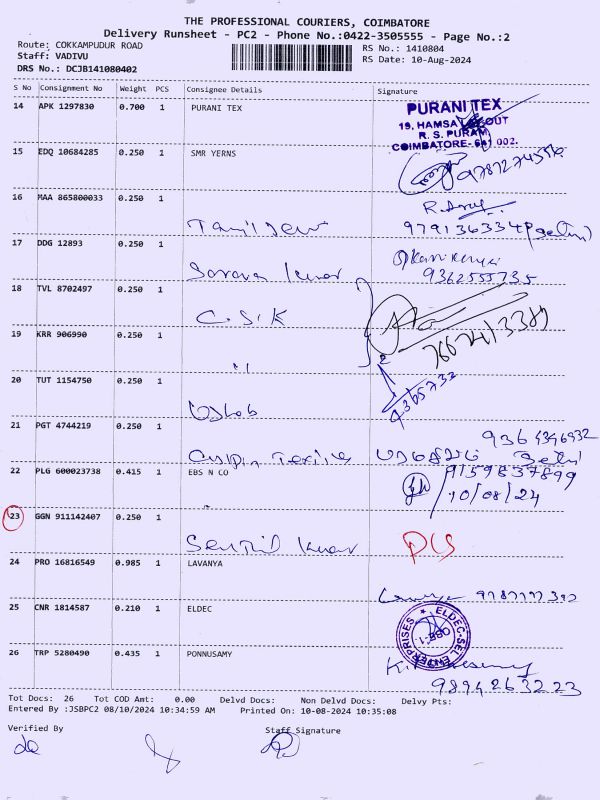 THE PROFESSIONAL COURIERS, COIMBATORE
Delivery Runsheet - PC2 - Phone No.:0422-3505555 - Page No.:2
Route: COKKAMPUDUR ROAD
Staff: VADIVU
DRS No.: DCJB141080402
RS No.: 1410804
RS Date: 10-Aug-2024
S No Consignment No Weight PCS Consignee Details Signature
14 APK 1297830 0.700 1 PURANI TEX
PURANI TEX
19, HAMSA
R. S. PURAM
COIMBATORE- 641 002.
15 EDQ 10684285 0.250 1 SMR YERNS
16 MAA 865800033 0.250 1
17 DDG 12893 0.250 1
9362555735
18 TVL 8702497 0.250 1
C.S.K
19 KRR 906990 0.250 1
"
20 TUT 1154750 0.250 1
21 PGT 4744219 0.250 1
22 PLG 600023738 0.415 1 EBS N CO
9159837899
10/08/24
23 GGN 911142407 0.250 1
Senthil Kumar
24 PRO 16816549 0.985 1 LAVANYA
25 CNR 1814587 0.210 1 ELDEC
ELDEC-SEL ENTERPRISES
CBE-1
26 TRP 5280490 0.435 1 PONNUSAMY
9894263223
Tot Docs: 26 Tot COD Amt: 0.00 Delvd Docs: Non Delvd Docs: Delvy Pts:
Entered By :JSBPC2 08/10/2024 10:34:59 AM Printed On: 10-08-2024 10:35:08
Verified By Staff Signature